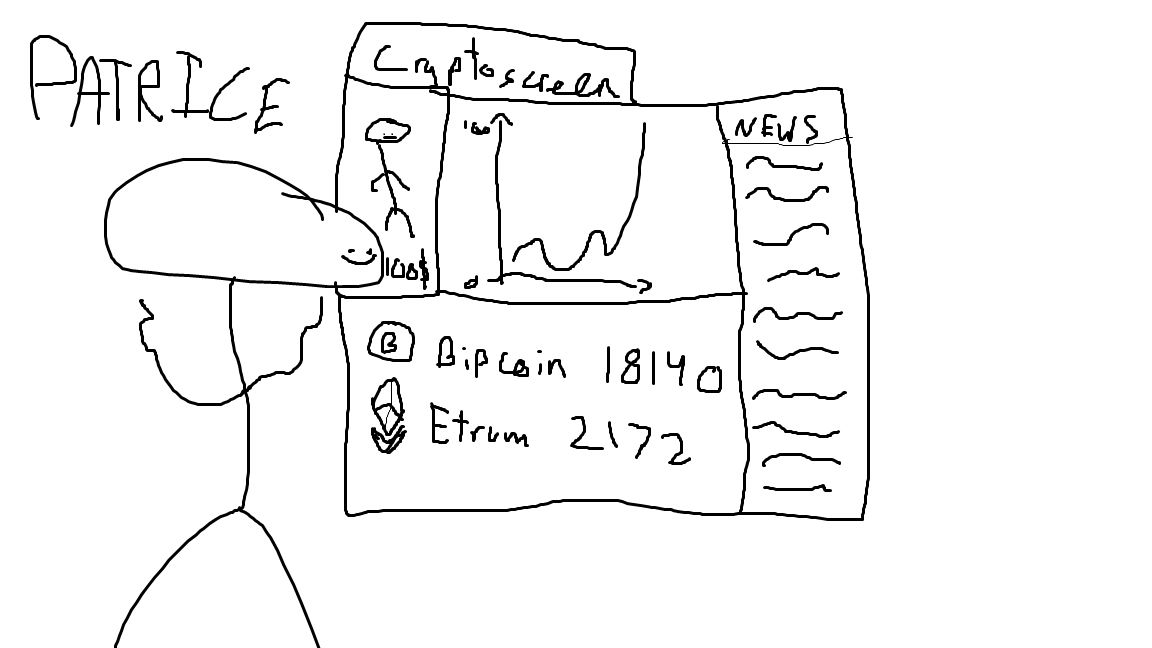 PATRICE
Cryptoscreen
NEWS
100
0
100$
B
Bipcoin 18140
Etrum 2172